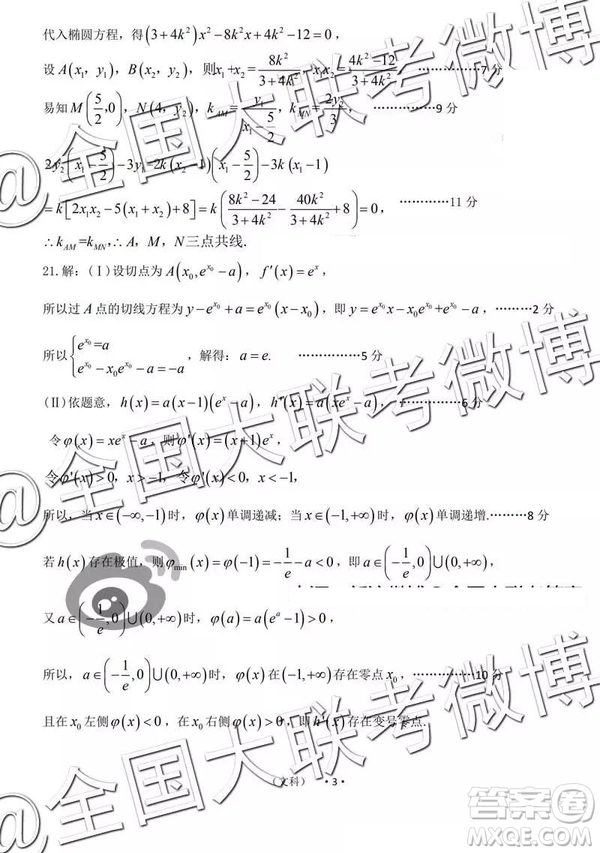 代入椭圆方程，得(3+4k²)x²-8k²x+4k²-12=0，
设A(x₁,y₁)，B(x₂,y₂)，则x₁+x₂=8k²/(3+4k²)，x₁x₂=(4k²-12)/(3+4k²)，⋯⋯⋯⋯⋯7分
易知M(5/2,0)，N(4,y₂)，k_AM=y₁/(x₁-5/2)，k_MN=2y₂/3，⋯⋯⋯⋯⋯9分
2y₂(x₁-5/2)-3y₁=2k(x₂-1)(x₁-5/2)-3k(x₁-1)
=k[2x₁x₂-5(x₁+x₂)+8]=k((8k²-24)/(3+4k²)-40k²/(3+4k²)+8)=0，⋯⋯⋯⋯11分
∴k_AM=k_MN,∴A，M，N三点共线.
21.解：(Ⅰ)设切点为A(x₀,e^{x₀}-a)，f'(x)=e^x，
所以过A点的切线方程为y-e^{x₀}+a=e^{x₀}(x-x₀)，即y=e^{x₀}x-x₀e^{x₀}+e^{x₀}-a，⋯⋯⋯2分
所以{e^{x₀}=a
e^{x₀}-x₀e^{x₀}-a=-a，解得：a=e. ⋯⋯⋯⋯⋯5分
(Ⅱ)依题意，h(x)=a(x-1)(e^x-a)，h'(x)=a(xe^x-a)，⋯⋯⋯⋯6分
令φ(x)=xe^x-a，则φ'(x)=(x+1)e^x，
令φ'(x)>0，x>-1，φ'(x)<0，x<-1，
所以，当x∈(-∞,-1)时，φ(x)单调递减；当x∈(-1,+∞)时，φ(x)单调递增.⋯⋯⋯8分
若h(x)存在极值，则φ_min(x)=φ(-1)=-1/e-a<0，即a∈(-1/e,0)∪(0,+∞)，
又a∈(-1/e,0)∪(0,+∞)时，φ(a)=a(e^a-1)>0，
所以，a∈(-1/e,0)∪(0,+∞)，φ(x)在(-1,+∞)存在零点x₀，⋯⋯⋯⋯⋯10分
且在x₀左侧φ(x)<0，在x₀右侧φ(x)>0，即h'(x)存在变号零点.
（文科） ·3·
@全国大联考微博
@全国大联考微博
@全国大联考微博
答案圈
MXQE.COM